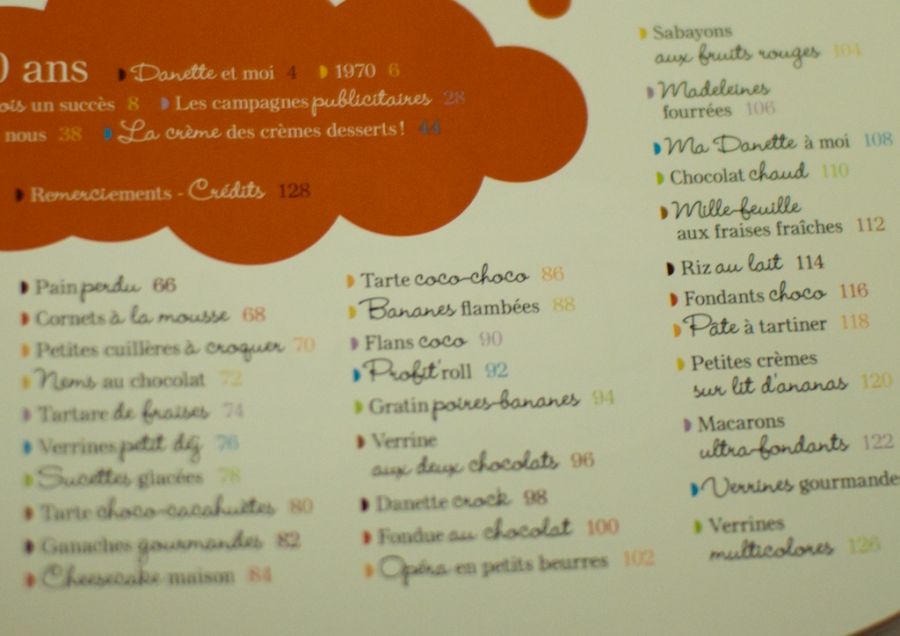 0 ans
Danette et moi 4 1970 6
ois un succès 8 Les campagnes publicitaires 28
nous 38 La crème des crèmes desserts! 44
Remerciements - Crédits 128
Pain perdu 66
Cornets à la mousse 68
Petites cuillères à croquer 70
Nems au chocolat 72
Tartare de fraises 74
Verrines petit déj 76
Sucettes glacées 78
Tarte choco-cacahuètes 80
Ganaches gourmandes 82
Cheesecake maison 84
Tarte coco-choco 86
Bananes flambées 88
Flans coco 90
Profit'roll 92
Gratin poires-bananes 94
Verrine
aux deux chocolats 96
Danette crock 98
Fondue au chocolat 100
Opéra en petits beurres 102
Sabayons
aux fruits rouges 104
Madeleines
fourrées 106
Ma Danette à moi 108
Chocolat chaud 110
Mille-feuille
aux fraises fraîches 112
Riz au lait 114
Fondants choco 116
Pâte à tartiner 118
Petites crèmes
sur lit d'ananas 120
Macarons
ultra-fondants 122
Verrines gourmande
Verrines
multicolores 126